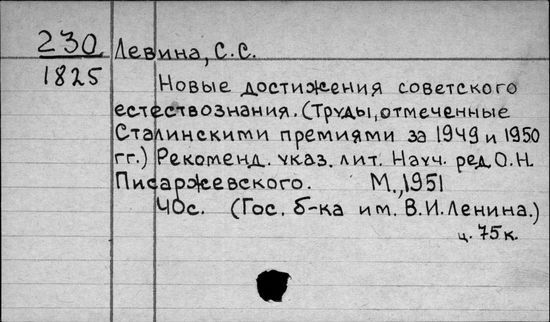 230 Левина, С.С.
1825
Новые достижения советского
естествознания. (Труды, отмеченные
Сталинскими премиями за 1949 и 1950
гг.) Рекоменд. указ. лит. Науч. ред. О.Н.
Писаржевского. М., 1951
40с. (Гос. б-ка им. В.И.Ленина.)
ц. 75 к.